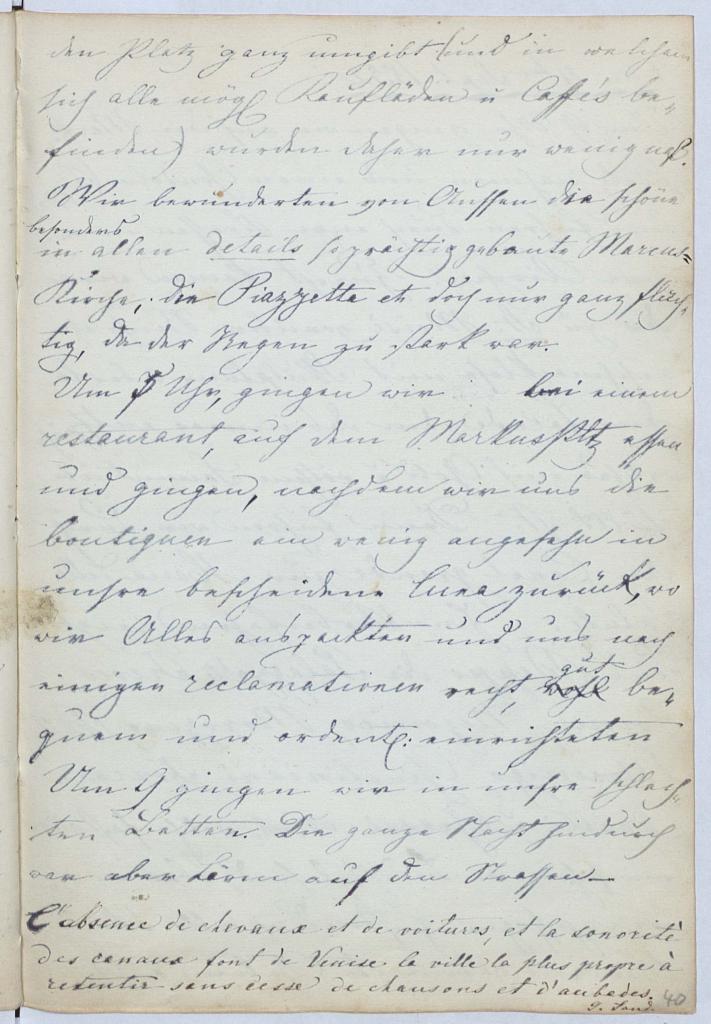 den Platz ganz umgibt (und in welchem
sich alle mögl Kaufläden u Caffés be-
finden) wurden daher nur wenig naß.
Wir bewunderten von Aussen die schöne
besonders
in allen details so prächtig gebaute Marcus-
Kirche, die Piazzetta etc doch nur ganz flüch-
tig, da der Regen zu stark war.
Um 5 Uhr, gingen wir bei einem
restaurant, auf dem MarkusPltz essen
und gingen, nachdem wir uns die
boutiquen ein wenig angesehn in
unsre bescheidene Luna zurück, wo
wir Alles auspackten und uns nach
gut
einigen reclamationen recht, wohl be-
quem und ordentl: einrichteten
Um 9 gingen wir in unsre schlech-
ten Betten. Die ganze Nacht hindurch
war aber Lärm auf den Strassen —
L'absence de chevaux et de voitures, et la sonorité
des canaux font de Venise la ville la plus propre à
retentir sans cesse de chansons et d'aubades.
G. Sand.
40